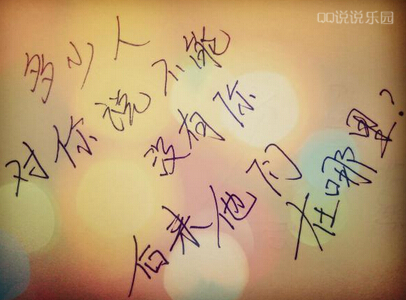 QQ说说乐园
多少人
对你说不能
没有你
后来他们
在哪里?